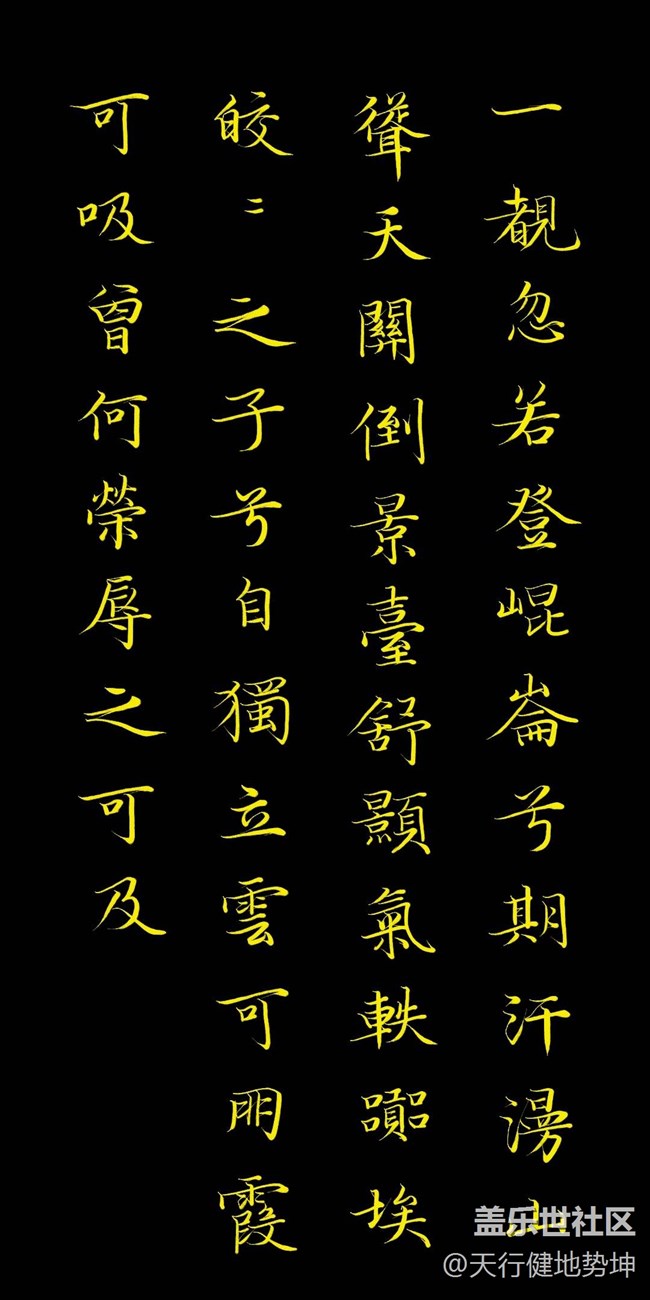 一覩忽若登崐崙兮期汗漫山
聳天關倒景臺舒顥氣軼嚻埃
皎〻之子兮自獨立雲可朋霞
可吸曾何榮辱之可及
盖乐世社区
@天行健地势坤